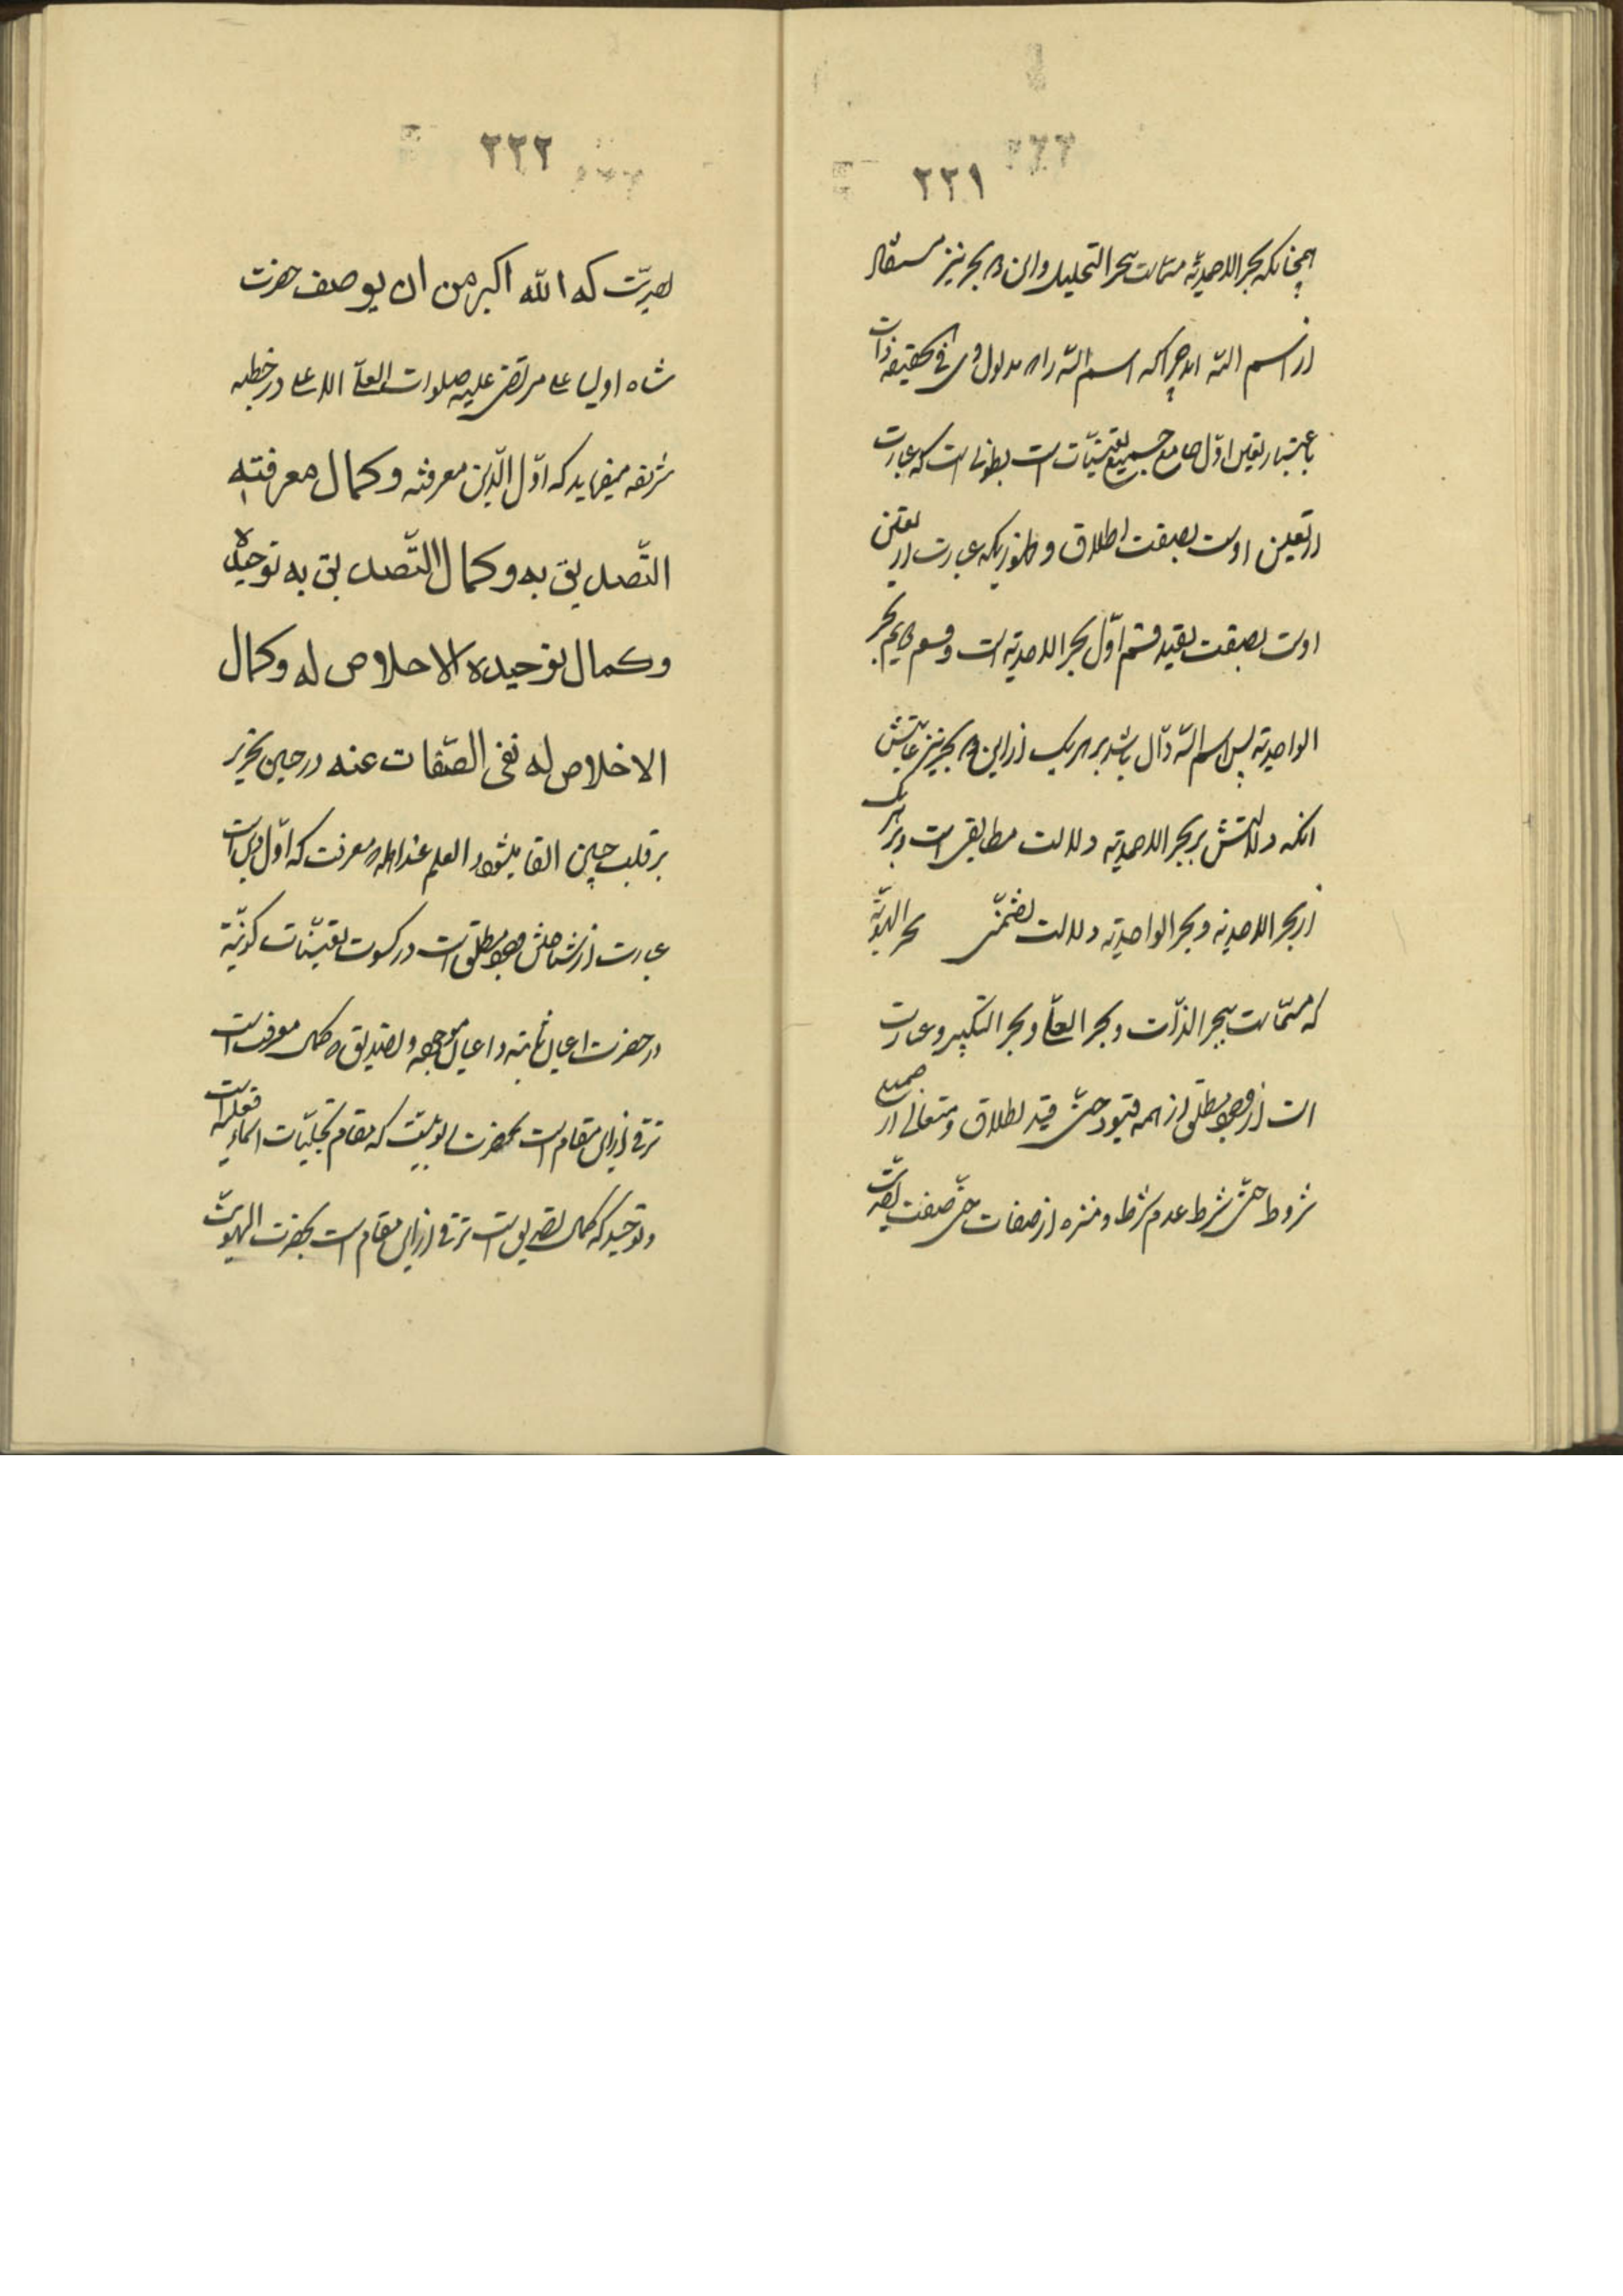 ۲۲۱
همچنانکه بحر الاحدیّه مسمّاست ببحر التحلیل و این دو بحر نیز مستفاد
از اسم اللّه اند چرا که اسم اللّه را مدلول فی الحقیقه ذات
باعتبار تعین اوّل جامع جمیع تعیّنات است بطونی است که عبارت
از تعین اوست بصفت اطلاق و ظهوریکه عبارت از تعین
اوست بصفت تقید قسم اوّل بحر الاحدیّه است و قسم دویم بحر
الواحدیّه پس اسم اللّه دالّ باشد بر هر یک از این دو بحر نیز غایتش
انکه دلالتش بر بحر الاحدیّه دلالت مطابقی است و بر هر یک
از بحر الاحدیه و بحر الواحدیّه دلالت تضمّنی بحر الهویّة
که مسمّاست ببحر الذّات و بحر العمآ و بحر التکبیر و عبارت
است از وجود مطلق از همه قیود حتّی قید اطلاق و متعالی از جمیع
شروط حتّی شرط عدم شرط و منزه از صفات حتّی صفت
۲۲۲
که اللّه اکبر من ان یوصف حضرت
شاه اولیا علی مرتضی علیه صلوات العلیّ الاعلی در خطبه
شریفه میفرماید که اوّل الدّین معرفته و کمال معرفته
التّصدیق به و کمال التّصدیق به توحیده
و کمال توحیده الاخلاص له و کمال
الاخلاص له نفی الصّفات عنه در حین تحریر
بر قلب چنین القا میشود و العلم عند اللّه معرفت که اوّل دین است
عبارت از شناختن وجود مطلق است در کسوت تعیّنات کونیّة
در حضرت اعیان ثابته و اعیان موجوده و تصدیق که کمال معرفت است
ترقی از این مقام است بحضرت الوهیّت که مقام تجلیّات اسمائیه و فعلیه است
و توحید که کمال تصدیق است ترقی از این مقام است بحضرت الهویّت